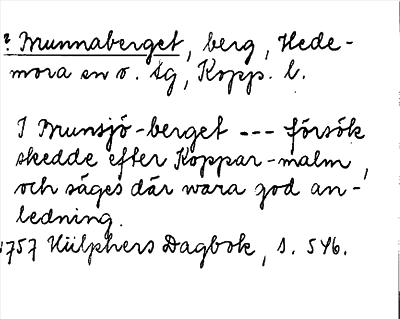 ? Munnaberget, berg, Hede-
mora sn o. sg, Kopp. l.
I Munsjö-berget --- försök
skedde efter Koppar-malm,
och säges där wara god an-
ledning.
1757 Hülphers Dagbok, s. 546.